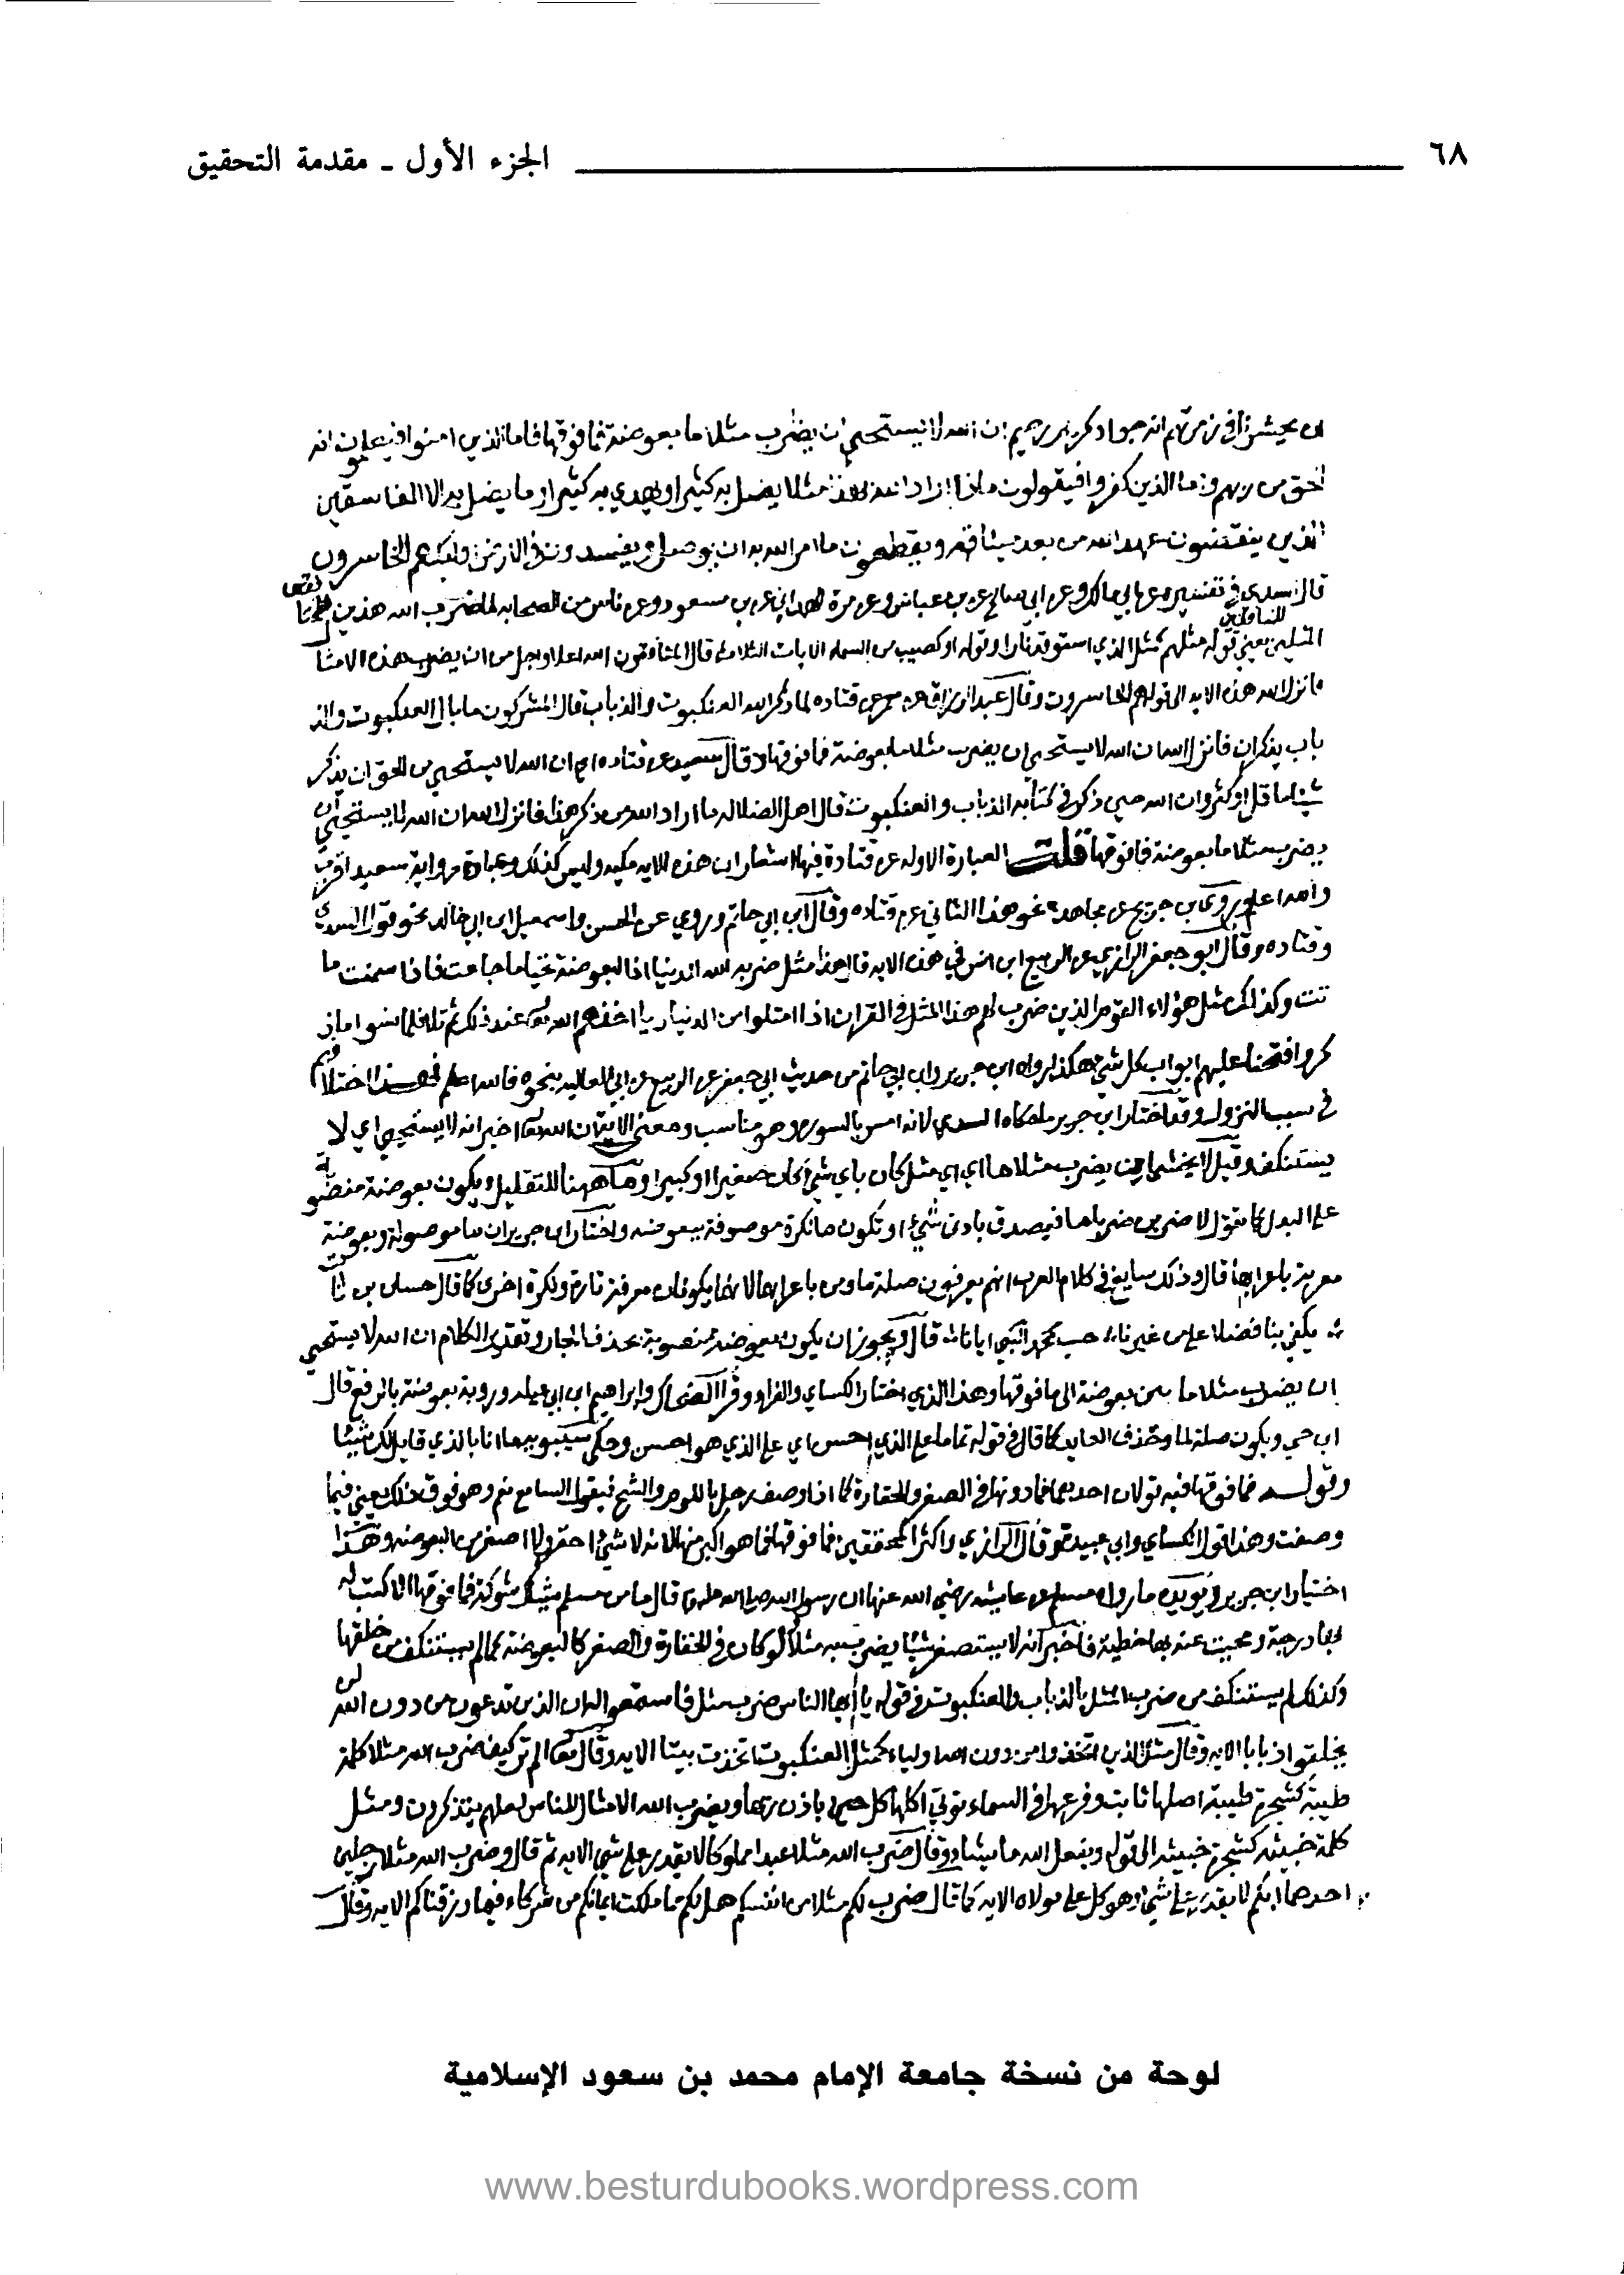 ٦٨ الجزء الأول ـ مقدمة التحقيق
ان يحشرنا في زمرتهم انه جواد كريم رحيم ان الله لا يستحيي ان يضرب مثلا ما بعوضة فما فوقها فاما الذين امنوا فيعلمون انه
الحق من ربهم واما الذين كفروا فيقولون ماذا اراد الله بهذا مثلا يضل به كثيرا ويهدي به كثيرا وما يضل به الا الفاسقين
الذين ينقضون عهد الله من بعد ميثاقه ويقطعون ما امر الله به ان يوصل ويفسدون في الارض اولئك هم الخاسرون
قال السدي في تفسيره عن ابي مالك وعن ابي صالح عن بن عباس وعن مرة الهمداني عن بن مسعود وعن ناس من الصحابه لما ضرب الله هذين
للمنافقين
المثلين يعني قوله مثلهم كمثل الذي استوقد نارا وقوله او كصيب من السماء الايات الثلاث قال المنافقون الله اعلا واجل من ان يضرب هذه الامثا
فانزل الله هذه الايه الى قوله هم الخاسرون وقال عبد الرزاق عن معمر عن قتاده لما ذكر الله العنكبوت والذباب قال المشركون ما بال العنكبوت والذ
باب يذكران فانزل الله ان الله لا يستحيي ان يضرب مثلا ما بعوضة فما فوقها وقال سعيد عن قتاده اي ان الله لا يستحيي من الحق ان يذكر
شيئا ما قل او كثر وان الله حين ذكر في كتابه الذباب والعنكبوت قال اهل الضلاله ما اراد الله من ذكر هذا فانزل الله ان الله لا يستحيي ان
يضرب مثلا ما بعوضة فما فوقها قلت العبارة الاوله عن قتادة فيها اشعار ان هذه الايه مكيه وليس كذلك وعبارة رواية سعيد اقرب
والله اعلم وروى بن جريج عن مجاهد نحو هذا الثاني عن قتاده وقال ابن ابي حاتم وروي عن الحسن واسمعيل ابن ابي خالد نحو قول السدي
وقتاده وقال ابو جعفر الرازي عن الربيع ابن انس في هذه الايه قال هذا مثل ضربه الله للدنيا اذا البعوضة تحيا ما جاعت فاذا سمنت ما
تت وكذلك مثل هؤلاء القوم الذين ضرب لهم هذا المثل في القران اذا امتلوا من الدنيا ريا اخذهم الله عند ذلك ثم تلا فلما نسوا ما ذ
كروا فتحنا عليهم ابواب كل شي هكذا رواه ابن جرير وابن ابي حاتم من حديث ابي جعفر عن الربيع عن ابي العاليه بنحوه فالله اعلم فهذا اختلا فهم
في سبب النزول وقد اختار ابن جرير ما حكاه السدي لانه امس بالسوره وهو مناسب ومعنى الاية ان الله اخبر انه لا يستحيي اي لا
يستنكف وقيل لا يخشى ان يضرب مثلا ما اي اي مثل كان باي شي كان صغيرا او كبيرا وما ههنا للتقليل ويكون بعوضة منصو بة
على البدل كما تقول لاضربن ضربا ما فيصدق بادنى شئ او تكون ما نكرة موصوفة ببعوضه واختار ابن جرير ان ما موصولة وبعوضة
معربة باعرابها قال وذلك سايغ في كلام العرب انهم يعربون صلة ما ومن باعرابهما لانهما يكونان معرفة تارة ونكرة اخرى كما قال حسان بن ثا
يكفي بنا فضلا على من غيرنا حب محمد النبي ايانا قال ويجوز ان يكون بعوضة منصوبة بحذف الجار وتقدير الكلام ان الله لا يستحيي
ان يضرب مثلا ما بين بعوضة الى ما فوقها وهذا الذي اختار الكساي والفراء وقرا الضحاك وابراهيم ابن ابي عبله وروبة بعوضة بالرفع قال
ابن جني ويكون صلة لما وحذف العايد كما قال في قوله تماما على الذي احسن اي على الذي هو احسن وحكى سيبويه ما انا بالذي قايل لك شيئا
وقوله فما فوقها فيه قولان احدهما فما دونها في الصغر والحقارة كما اذا وصف رجل باللوم والشح فيقول السامع نعم وهو فوق ذلك يعني فيما
وصفت وهذا قول الكساي وابي عبيد قال الرازي واكثر المحققين فما فوقها فما هو اكبر منها لانه لا شئ احقر ولا اصغر من البعوضه وهذا
اختيار ابن جرير ويويده ما رواه مسلم عن عايشه رضي الله عنها ان رسول الله صلى الله عليه قال ما من مسلم يشاك شوكة فما فوقها الا كتب له
بها درجة ومحيت عنه بها خطية فاخبر انه لا يستصغر شيئا يضرب به مثلا لو كان في الحقارة والصغر كالبعوضة كما لم يستنكف من خلقها
وكذلك لم يستنكف من ضرب المثل بالذباب والعنكبوت في قوله يا ايها الناس ضرب مثل فاستمعوا له ان الذين تدعون من دون الله لن
يخلقوا ذبابا الايه وقال مثل الذين اتخذوا من دون الله اولياء كمثل العنكبوت اتخذت بيتا الايه وقال الم تر كيف ضرب الله مثلا كلمة
طيبة كشجرة طيبة اصلها ثابت وفرعها في السماء توتي اكلها كل حين باذن ربها ويضرب الله الامثال للناس لعلهم يتذكرون ومثل
كلمة خبيثه كشجرة خبيثه الى قوله ويفعل الله ما يشاء وقال ضرب الله مثلا عبدا مملوكا لا يقدر على شي الايه ثم قال وضرب الله مثلا رجلين
احدهما ابكم لا يقدر على شئ وهو كل على مولاه الايه كما قال ضرب لكم مثلا من انفسكم هل لكم مما ملكت ايمانكم من شركاء فيما رزقناكم الايه وقال
لوحة من نسخة جامعة الإمام محمد بن سعود الإسلامية
www.besturdubooks.wordpress.com